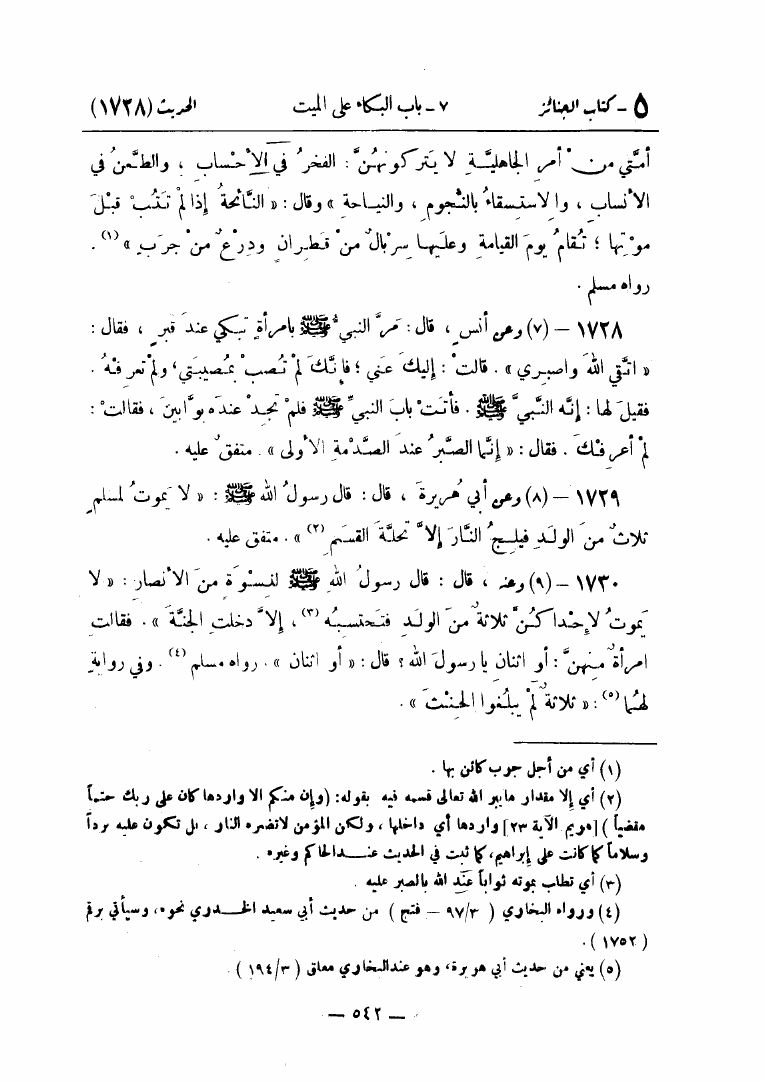 ٥ - كتاب الجنائز ٧ - باب البكاء على الميت الحديث (١٧٢٨)
أمَّتي من أمرِ الجاهليَّةِ لا يَتركونَهُنَّ : الفخرُ في الأحْسابِ ، والطَّعنُ في
الأنسابِ ، والاستِسقاءُ بالنُّجومِ ، والنياحة » وقال : « النَّائحةُ إذا لمْ تَتُبْ قبلَ
موْتِها ؛ تُقامُ يومَ القيامةِ وعليها سِرْبالٌ منْ قَطِرانٍ ودِرْعٌ منْ جرَبٍ » (١) .
رواه مسلم .
١٧٢٨ – (٧) وعن أنسٍ ، قال : مَرَّ النبيُّ ﷺ بامرأةٍ تبكي عندَ قبرٍ ، فقال :
« اتَّقي اللهَ واصبِري » . قالتْ : إليكَ عَني ؛ فإنَّكَ لمْ تُصَبْ بمُصيبَتي، ولمْ تعرِفْهُ .
فقيلَ لها : إنَّه النَّبيُّ ﷺ . فأتَتْ بابَ النبيِّ ﷺ فلمْ تجدْ عندَه بوَّابينَ ، فقالتْ :
لمْ أعرِفْكَ . فقال : « إنَّما الصَّبرُ عندَ الصَّدْمةِ الأولى » . متفقٌ عليه .
١٧٢٩ – (٨) وعن أبي هُريرةَ ، قال : قال رسولُ اللهِ ﷺ : « لا يَموتُ لمسلمٍ
ثلاثٌ منَ الولَدِ فيلِجُ النَّارَ إلاَّ تَحلَّةَ القسَمِ (٢) » . متفق عليه .
١٧٣٠ – (٩) وعنه ، قال : قال رسولُ اللهِ ﷺ لنِسْوَةٍ منَ الأنصارِ : « لا
يَموتُ لإحْداكُنَّ ثلاثةٌ منَ الولَدِ فتَحتَسِبُه (٣) ، إلاَّ دخلتِ الجنَّةَ » . فقالت
امرأةٌ منهنَّ : أو اثنان يا رسولَ الله ؟ قال : « أو اثنان » . رواه مسلم (٤) . وفي روايةٍ
لهُما (٥) : « ثلاثةٌ لمْ يبلُغوا الحِنْثَ » .
(١) أي من أجل جرب كائن بها .
(٢) أي إلا مقدار ما يبر الله تعالى قسمه فيه بقوله: (وإن منكم الا واردها كان على ربك حتماً
مقضياً ) [مريم الآية ٢٣] واردها أي داخلها ، ولكن المؤمن لا تضره النار ، بل تكون عليه برداً
وسلاماً كما كانت على إبراهيم، كما ثبت في الحديث عند الحاكم وغيره .
(٣) أي تطلب بموته ثواباً عند الله بالصبر عليه .
(٤) ورواه البخاري ( ٩٧/٣ – فتح ) من حديث أبي سعيد الخدري نحوه، وسيأتي برقم
( ١٧٥٢ ) .
(٥) يعني من حديث أبي هريرة، وهو عند البخاري معلق ( ١٩٤/٣ ) .
— ٥٤٢ —